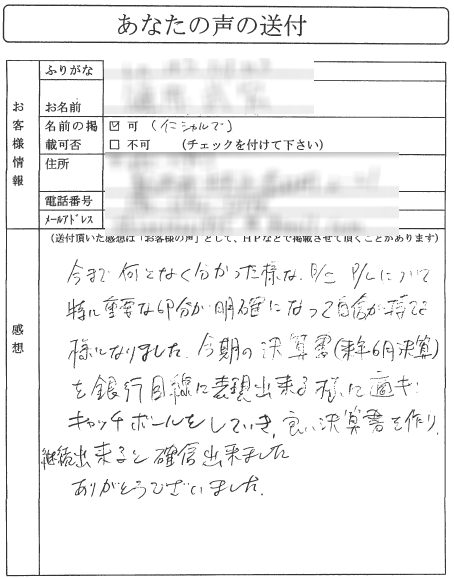 あなたの声の送付
お客様情報
ふりがな
お名前
名前の掲載可否
☑ 可 (イニシャルで)
□ 不可 (チェックを付けて下さい)
住所
電話番号
メールアドレス
感想
(送付頂いた感想は「お客様の声」として、HPなどで掲載させて頂くことがあります)
今まで何となく分かった様な、B/S P/Lについて
特に重要な部分が明確になって自信が持てる
様になりました。今期の決算書(来年6月決算)
を銀行目線に表現出来る様に適キ
キャッチボールをしていき、良い決算書を作り、
継続出来ると確信出来ました
ありがとうございました。